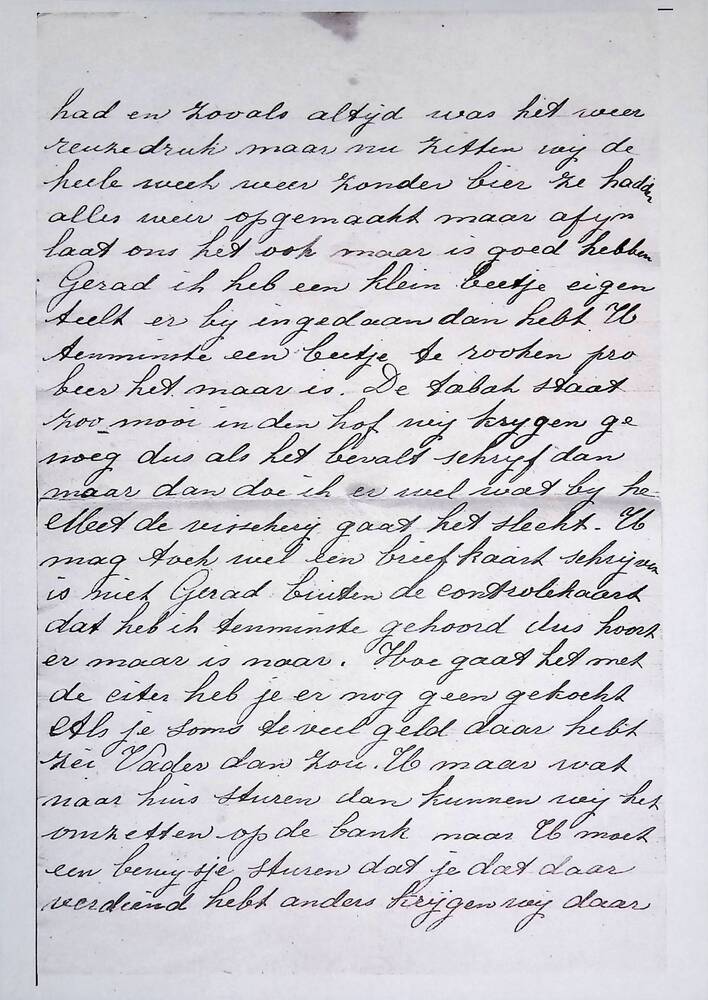 had en zovals altijd was het weer
reuzedruk maar nu zitten wij de
heele week weer zonder bier ze hadden
alles weer opgemaakt maar afijn
laat ons het ook maar is goed hebben
Gerad ik heb een klein beetje eigen
teelt er bij ingedaan dan hebt U
tenminste een beetje te rooken pro
beer het maar is. De tabak staat
zoo mooi in den hof wij krygen ge
noeg dus als het bevalt schrijf dan
maar dan doe ik er wel wat by he
Met de visscherij gaat het slecht. U
mag toch wel een briefkaart schrijven
is niet Gerad buiten de controlekaart
dat heb ik tenminste gehoord dus hoort
er maar is naar. Hoe gaat het met
de citer heb je er nog geen gekocht
Als je soms te veel geld daar hebt
zei Vader dan zou U maar wat
naar huis sturen dan kunnen wij het
omzetten op de bank maar U moet
een bewysje sturen dat je dat daar
verdiend hebt anders krijgen wij daar